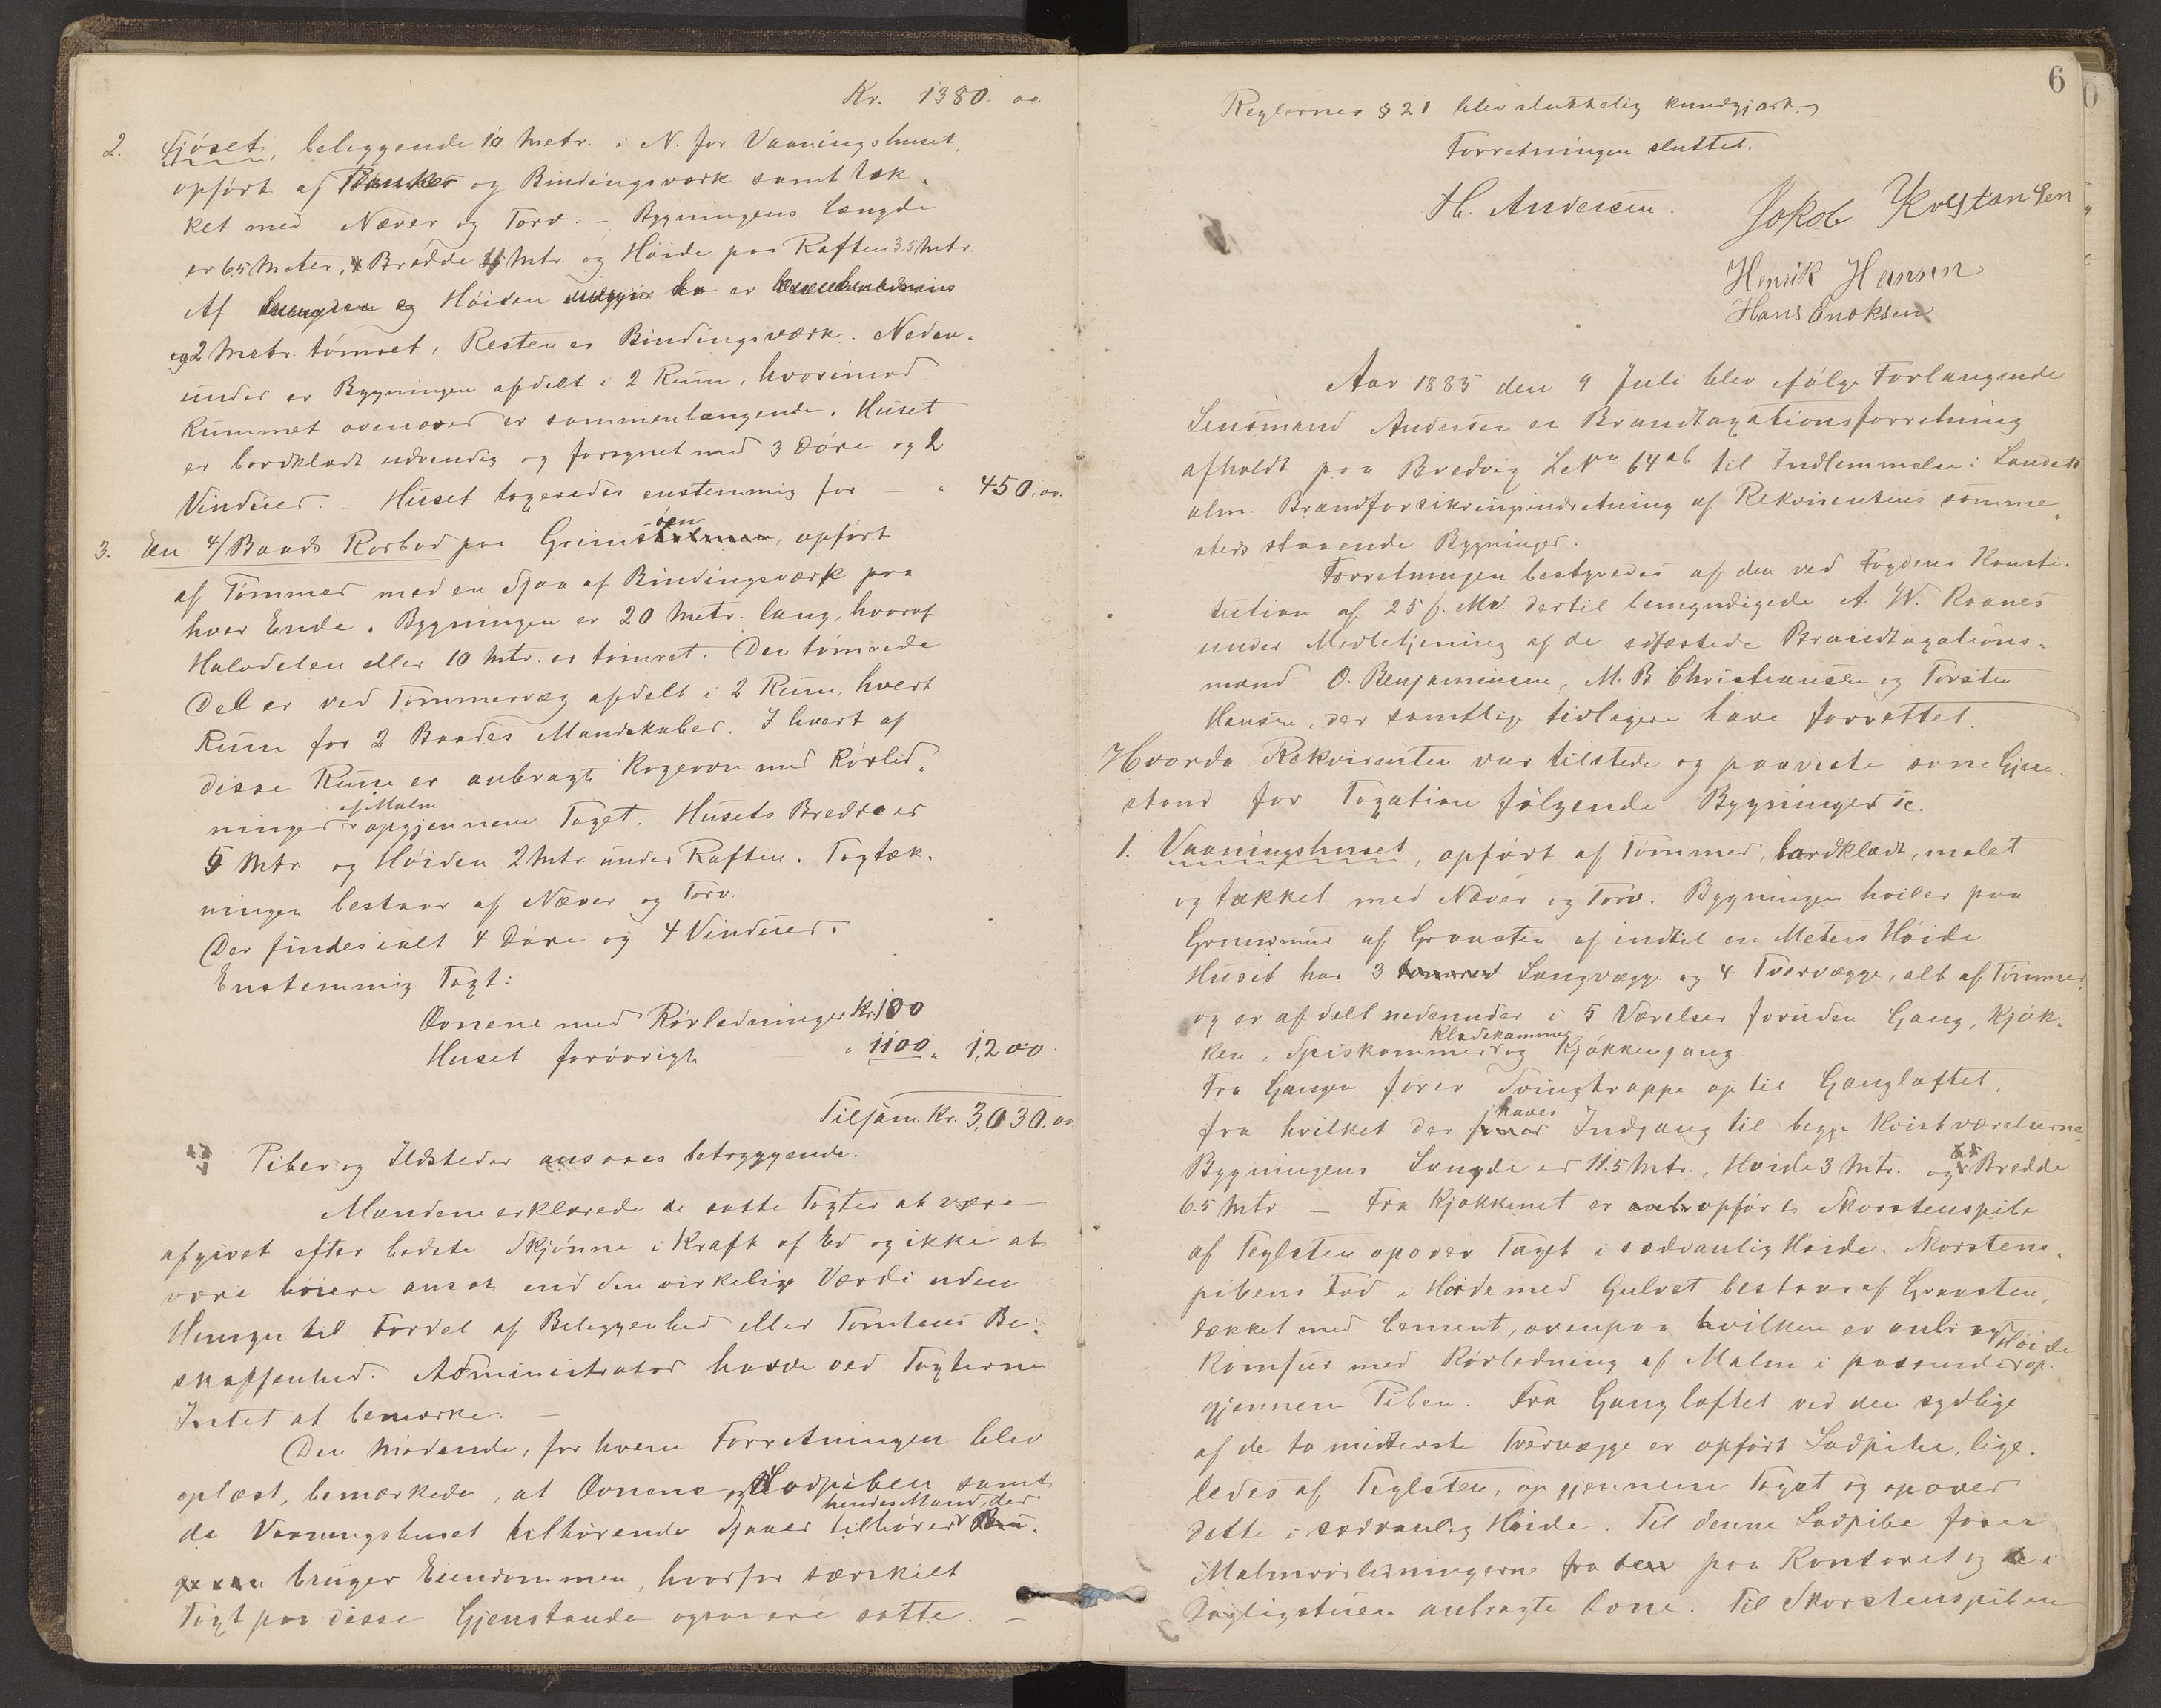 Kr. 1380. oo.
2. Fjöset, beliggende 10 Metr. i N. for Vaaningshuset,
opfört af og Bindingsværk samt tæk-
ket med Næver og Torv. – Bygningens Længde
er 6.5 Meter, Bredde Mtr. og Höide paa Raften 3.5 Mtr.
Af Höiden er
og 2 Metr. tömret, Resten er Bindingsværk. Neden-
under er Bygningen afdelt i 2 Rum, hvorimod
Rummet ovenover er sammenhængende. Huset
er bordklædt udvendig og forsynet med 3 Döre og 2
Vinduer. Huset taxeredes enstemmig for — " 450. oo.
3. En 4/Baads Rorbod paa Grimsöen, opfört
af Tömmer med en Sjaa af Bindingsværk paa
hver Ende. Bygningen er 20 Metr. lang, hvoraf
Halvdelen eller 10 Mtr. er tömret. Den tömrede
Del er ved Tömmervæg afdelt i 2 Rum, hvert
Rum for 2 Baades Mandskaber. I hvert af
disse Rum er anbragt Kogeovn med Rörled-
ninger af Malm opgjennem Taget. Husets Bredde er
5 Mtr. og Höiden 2 Mtr. under Raften. Tagtæk-
ningen bestaar af Næver og Torv.
Der findes ialt 4 Döre og 4 Vinduer.
Enstemmig Taxt:
Ovnene med Rörledninger Kr. 100
Huset forövrigt " 1100 " 1,200
Tilsam. Kr. 3,030. oo
Piber og Ildsteder ansaaes betryggende.
Mændene erklærede de satte Taxter at være
afgivet efter bedste Skjönne i Kraft af Ed og ikke at
være höiere ansat end den virkelige Værdi uden
Hensyn til Fordel af Beliggenhed eller Tomtens Be-
skaffenhed. Administrator havde ved Taxterne
Intet at bemærke. –
Den Mödende, for hvem Forretningen blev
oplæst, bemærkede, at Ovnene og Ladpiben samt
de Vaaningshuset tilhörende Sjaaer tilhörer hendes Mand, der
bruger Eiendommen, hvorfor særskilt
Taxt paa disse Gjenstande ogsaa ere satte. –
6
Reglernes § 21 blev sluttelig kundgjort.
Forretningen sluttet.
H. Andersen. Jakob Krestansen
Henrik Hansen
Hans Enoksen
Aar 1885 den 9 Juli blev ifölge Forlangende
Lensmand Andersen en Brandtaxationsforretning
afholdt paa Bredvig L.No. 64ab til Indlemmelse i Landets
alm. Brandforsikringsindretning af Rekvirentens samme-
steds staaende Bygninger.
Forretningen bestyredes af den ved Fogdens Konsti-
tution af 25 f. Md. dertil bemyndigede A. W. Raanes
under Medbetjening af de edfæstede Brandtaxations-
mænd O. Benjaminsen, M. B. Christiansen og Torsten
Hansen, der samtlige tidligere have forrettet.
Hvorda Rekvirenten var tilstede og paaviste som Gjen-
stand for Taxation fölgende Bygninger &c.
1. Vaaningshuset, opfört af Tömmer, bordklædt, malet
og tækket med Næver og Torv. Bygningen hviler paa
Grundmur af Graasten af indtil en Meters Höide
Huset har 3 tömrede Langvægge og 4 Tvervægge, alt af Tömmer,
og er afdelt nedenunder i 5 Værelser foruden Gang, Kjök-
ken, Spiskammer, Klædekammer og Kjökkengang.
Fra Gangen förer Svingtrappe op til Gangloftet,
fra hvilket der haves Indgang til begge Kvistværelserne.
Bygningens Længde er 11.5 Mtr., Höide 3 Mtr. og Bredde
6.5 Mtr. – Fra Kjökkenet er opfört Skorstenspibe
af Teglsten opover Taget i sædvanlig Höide. Skorstens-
pibens Fod i Höide med Gulvet bestaar af Graasten,
dækket med Cement, ovenpaa hvilken er anbragt
Komfur med Rörledning af Malm i passende Höide op-
gjennem Piben. Fra Gangloftet ved den sydlige
af de to midterste Tvervægge er opfört Ladpibe, lige-
ledes af Teglsten, opgjennem Taget og opover
dette i sædvanlig Höide. Til denne Ladpibe förer
Malmrörledningerne fra den paa Kontoret og i
Dagligstuen anbragte Ovne. Til Skorstenspiben